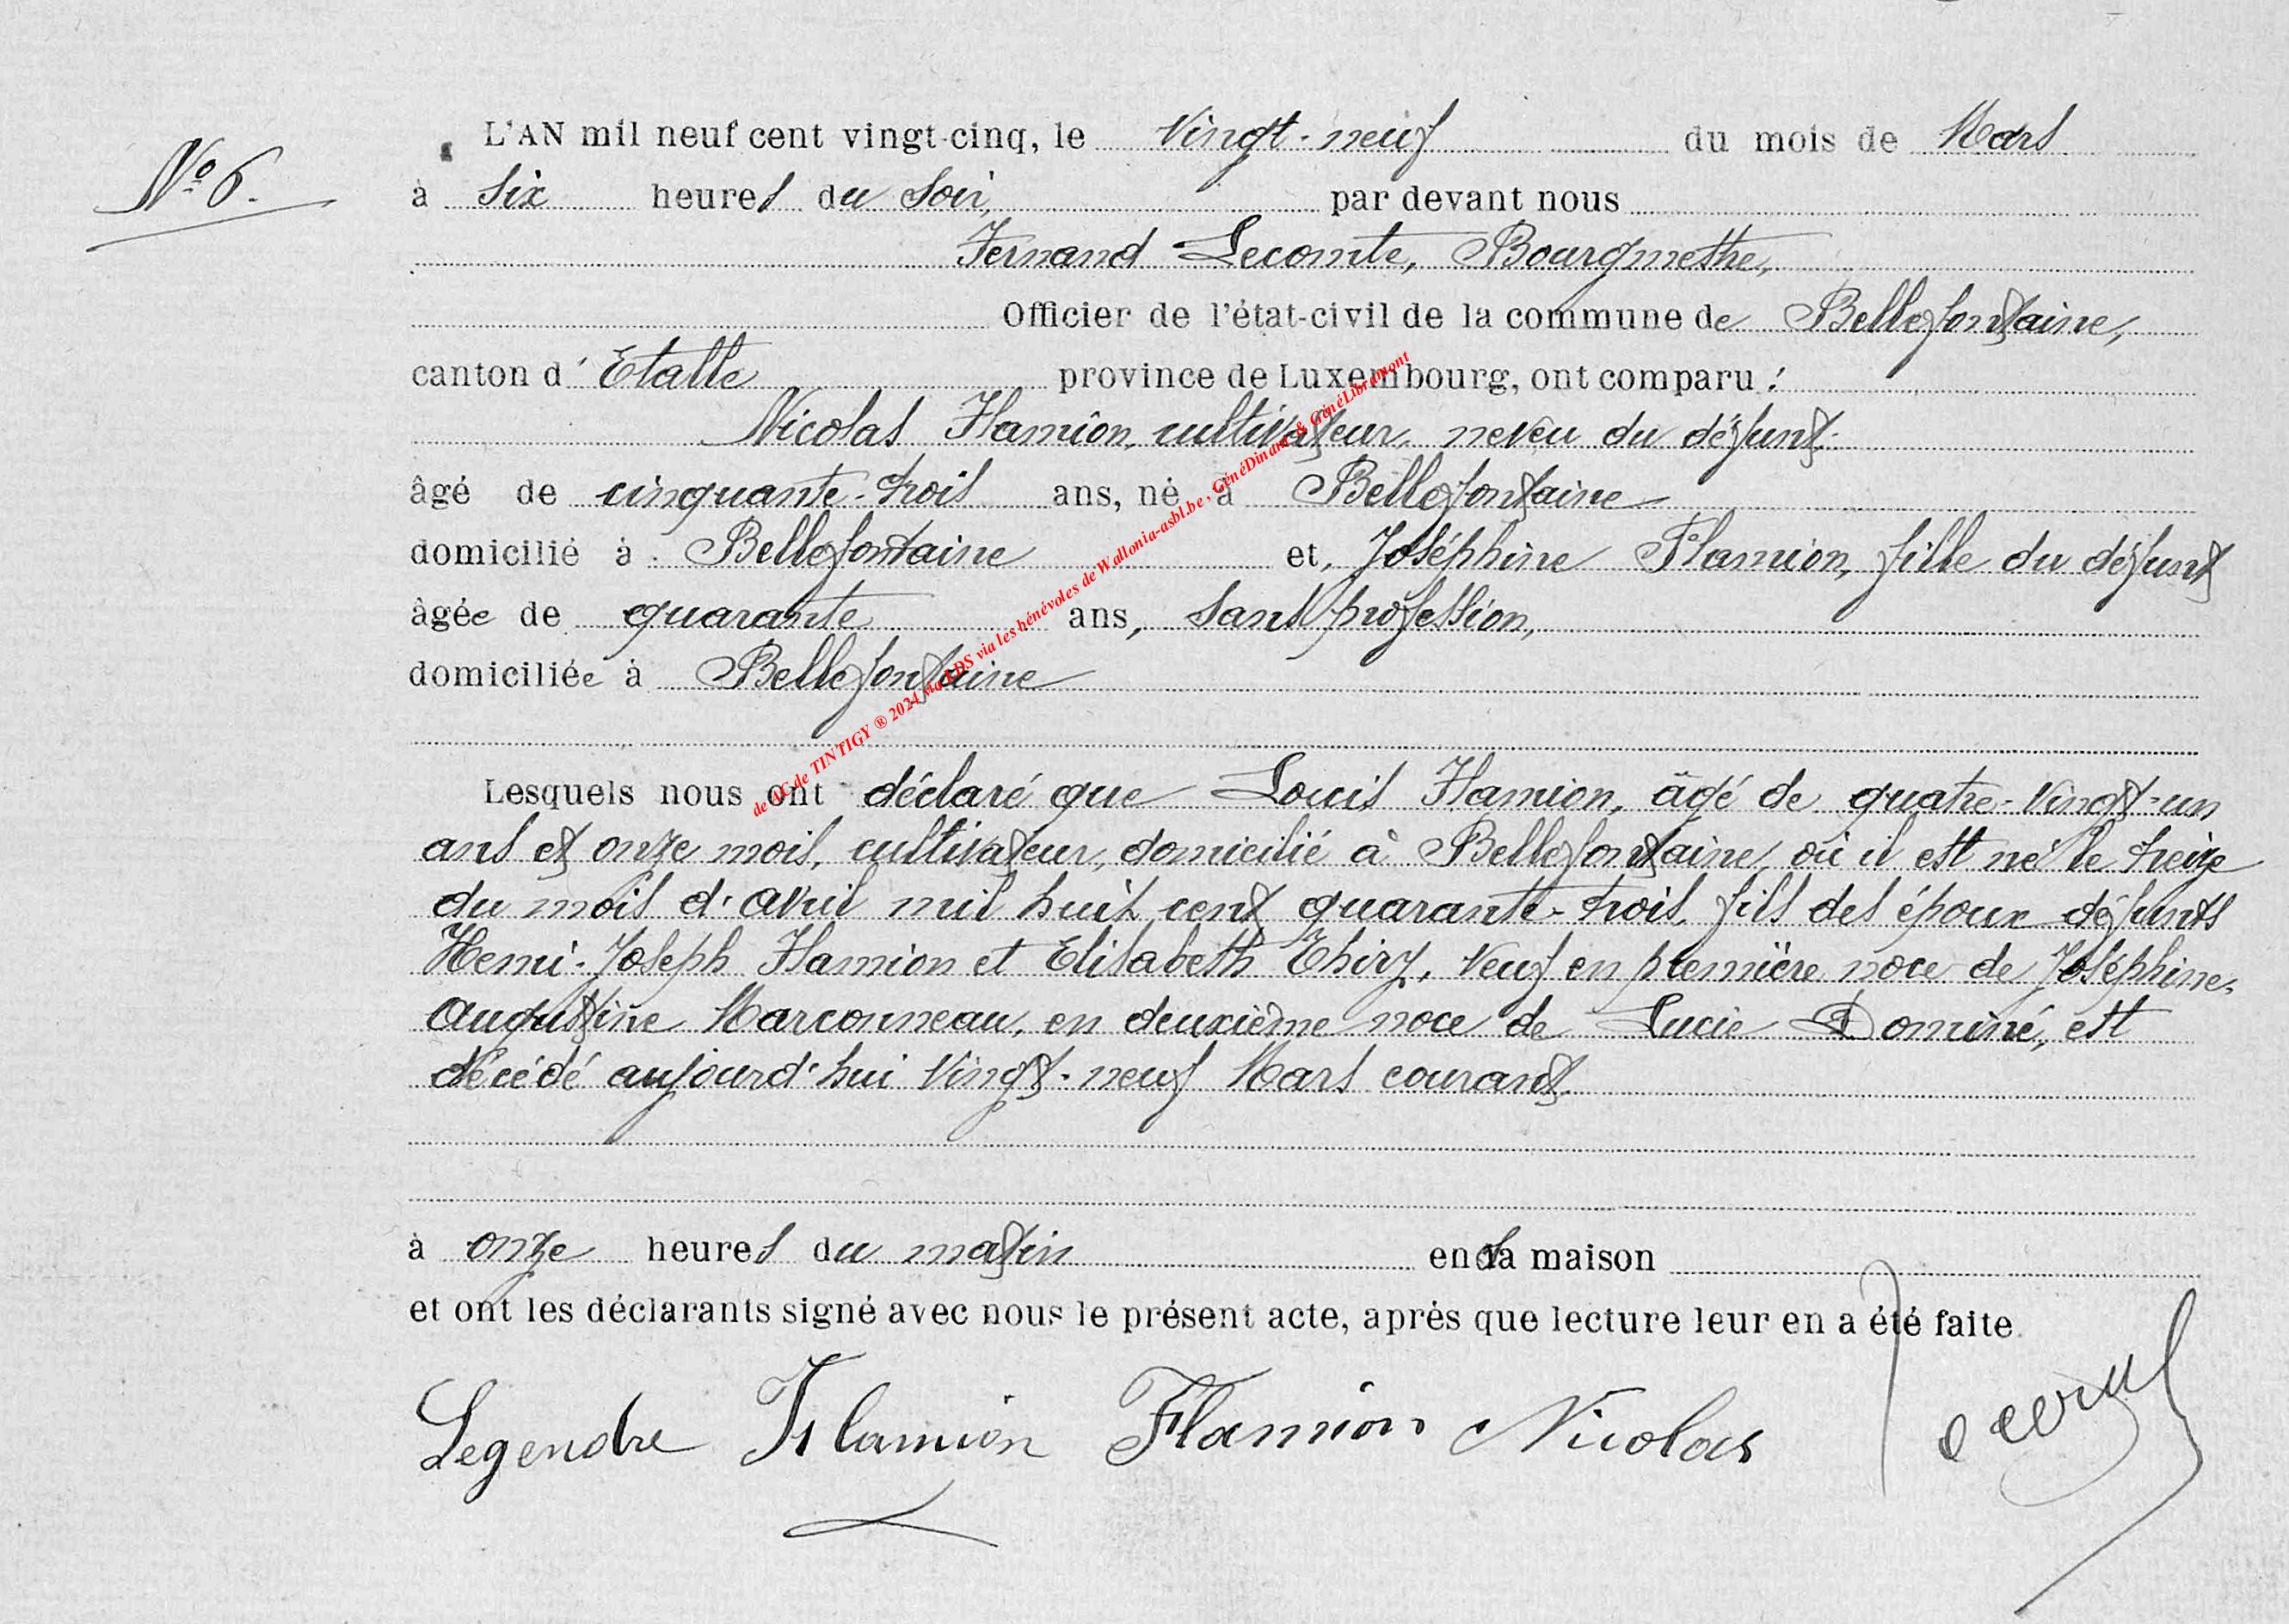 L'AN mil neuf cent vingt-cinq, le Vingt-neuf du mois de Mars
N° 6.
à six heures du soir, par devant nous
Fernand Lecomte, Bourgmestre,
Officier de l'état-civil de la commune de Bellefontaine,
canton d' Etalle province de Luxembourg, ont comparu :
Nicolas Flamion, cultivateur, neveu du défunt,
âgé de cinquante-trois ans, né à Bellefontaine
domicilié à Bellefontaine et, Joséphine Flamion, fille du défunt
âgée de quarante ans, sans profession,
domiciliée à Bellefontaine
Lesquels nous ont déclaré que Louis Flamion, âgé de quatre-vingt-un
ans et onze mois, cultivateur, domicilié à Bellefontaine, où il est né le treize
du mois d'avril mil huit cent quarante-trois, fils des époux défunts
Henri-Joseph Flamion et Elisabeth Thiry, veuf en première noce de Joséphine-
Augustine Marconneau, en deuxième noce de Lucie Dominé, est
décédé aujourd'hui vingt-neuf Mars courant,
à onze heures du matin en sa maison
et ont les déclarants signé avec nous le présent acte, après que lecture leur en a été faite.
Legendre Flamion Flamion Nicolas
de AC de TINTIGY ® 2024 via FDS via les bénévoles de Wallonia-asbl.be, GénéDinant & GénéLibramont